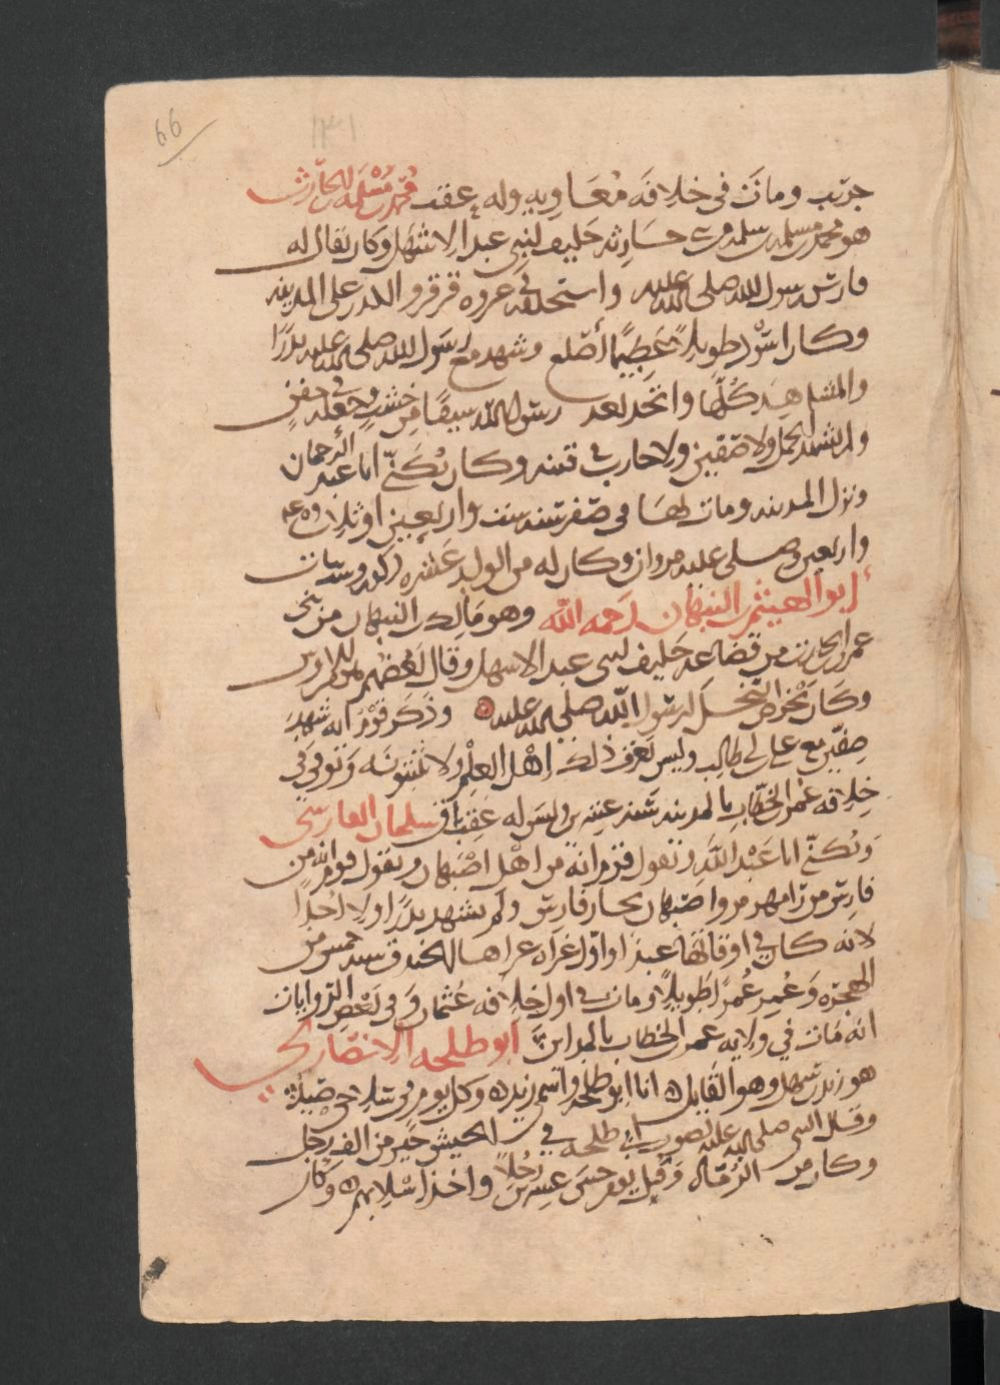 66
١٣١
حرب ومات في خلافة معاوية وله عقب محمد بن مسلمة بن الحارث
هو محمد بن مسلمة بن سلمة من بني حارثة حليف لبني عبد الاشهل وكان يقال له
فارس رسول الله صلى الله عليه واستخلفه في غزوة قرقرة الكدر على المدينة
وكان اسود طويلا عظيما أصلع وشهد مع رسول الله صلى الله عليه بدرا
والمشاهد كلها واتخذ بعد رسول الله سيفا من خشب وجعله في جفن
ولم يشهد الجمل ولا صفين ولا حارب في فتنة وكان يكنى ابا عبد الرحمان
ونزل المدينة ومات بها في صفر سنة ست واربعين او ثلاث
واربعين وصلى عليه مروان وكان له من الولد عشرة ذكور وست بنات
ابو الهيثم بن التيهان رحمه الله وهو مالك بن التيهان من بني
عمرو بن الحارث من قضاعة حليف لبني عبد الاشهل وقال بعضهم من الاوس
وكان يخرص النخل لرسول الله صلى الله عليه وذكر قوم انه شهد
صفين مع علي بن ابي طالب وليس يعرف ذلك اهل العلم ولا يثبتونه وتوفي في
خلافة عمر بن الخطاب بالمدينة سنة عشرين وليس له عقب باق سلمان الفارسي
ويكنى ابا عبد الله ويقول قوم انه من اهل اصبهان ويقول قوم انه من
فارس من رامهرمز واصبهان بحار فارس ولم يشهد بدرا ولا احدا
لانه كان في اوقاتها عبدا واول غزاة غزاها الخندق سنة خمس من
الهجرة وعمر عمرا طويلا ومات في اول خلافة عثمان وفي بعض الروايات
انه مات في ولاية عمر بن الخطاب بالمداين ابو طلحة الانصاري
هو زيد بن سهل وهو القايل انا ابو طلحة واسمي زيد وكل يوم في سلاحي صيد
وقال النبي صلى الله عليه لصوت ابي طلحة في الجيش خير من الف رجل
وكان من الرماة وقتل يوم حنين عشرين رجلا واخذ اسلابهم وكان